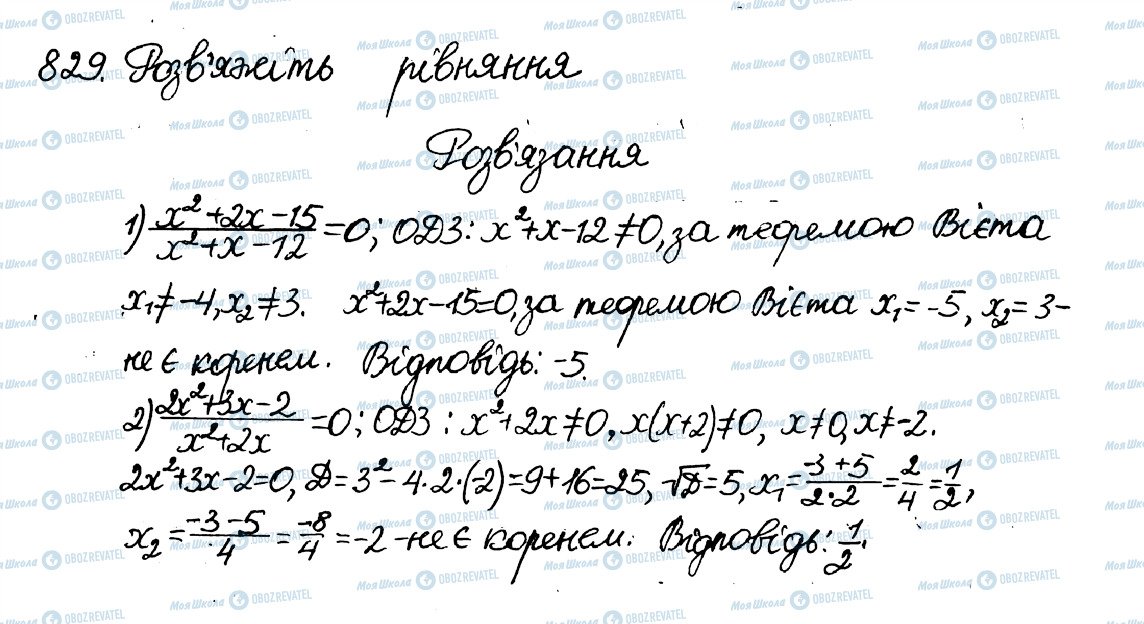 829. Розв'яжіть рівняння
Розв'язання
1) (x²+2x-15)/(x²+x-12)=0; ОДЗ: x²+x-12≠0, за теоремою Вієта
x₁≠-4, x₂≠3. x²+2x-15=0, за теоремою Вієта x₁=-5, x₂=3-
не є коренем. Відповідь: -5.
2) (2x²+3x-2)/(x²+2x)=0; ОДЗ: x²+2x≠0, x(x+2)≠0, x≠0, x≠-2.
2x²+3x-2=0, D=3²-4·2·(-2)=9+16=25, √D=5, x₁=(-3+5)/(2·2)=2/4=1/2,
x₂=(-3-5)/4=-8/4=-2-не є коренем. Відповідь: 1/2.
МояШкола OBOZREVATEL